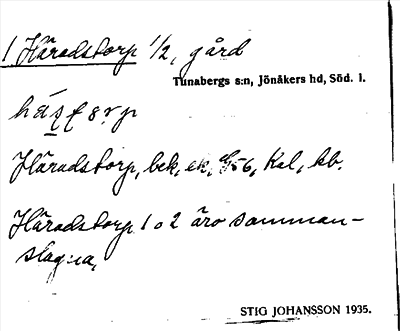 1 Häradstorp 1/2, gård
Tunabergs s:n, Jönåkers hd, Söd. l.
Häradstorp, bek, ek, 56, Kal, kb.
Häradstorp 1 o 2 äro samman-
slagna,
STIG JOHANSSON 1935.